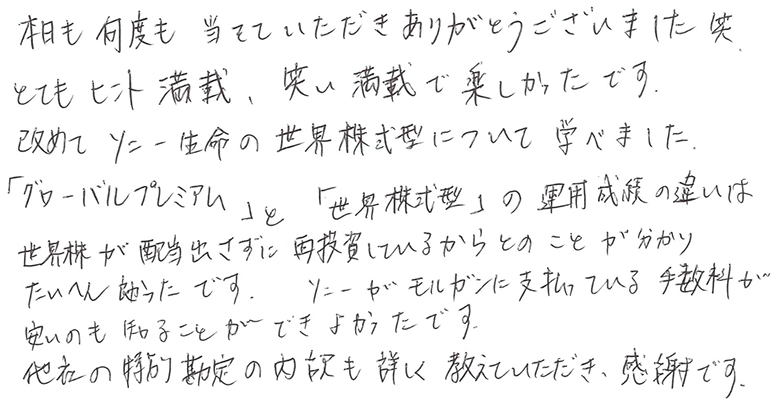 本日も 何度も 当てていただきありがとうございました 笑.
とても ヒント 満載、笑い 満載で 楽しかったです.
改めて ソニー生命の 世界株式型について 学べました.
「グローバルプレミアム」と 「世界株式型」の 運用成績の違いは
世界株が 配当出さずに 再投資しているからとの ことが分かり
たいへん 助かったです. ソニーが モルガンに 支払っている 手数料が
安いのも 知ることが できよかったです.
他社の 特別勘定の内訳も 詳しく 教えていただき、感謝です.